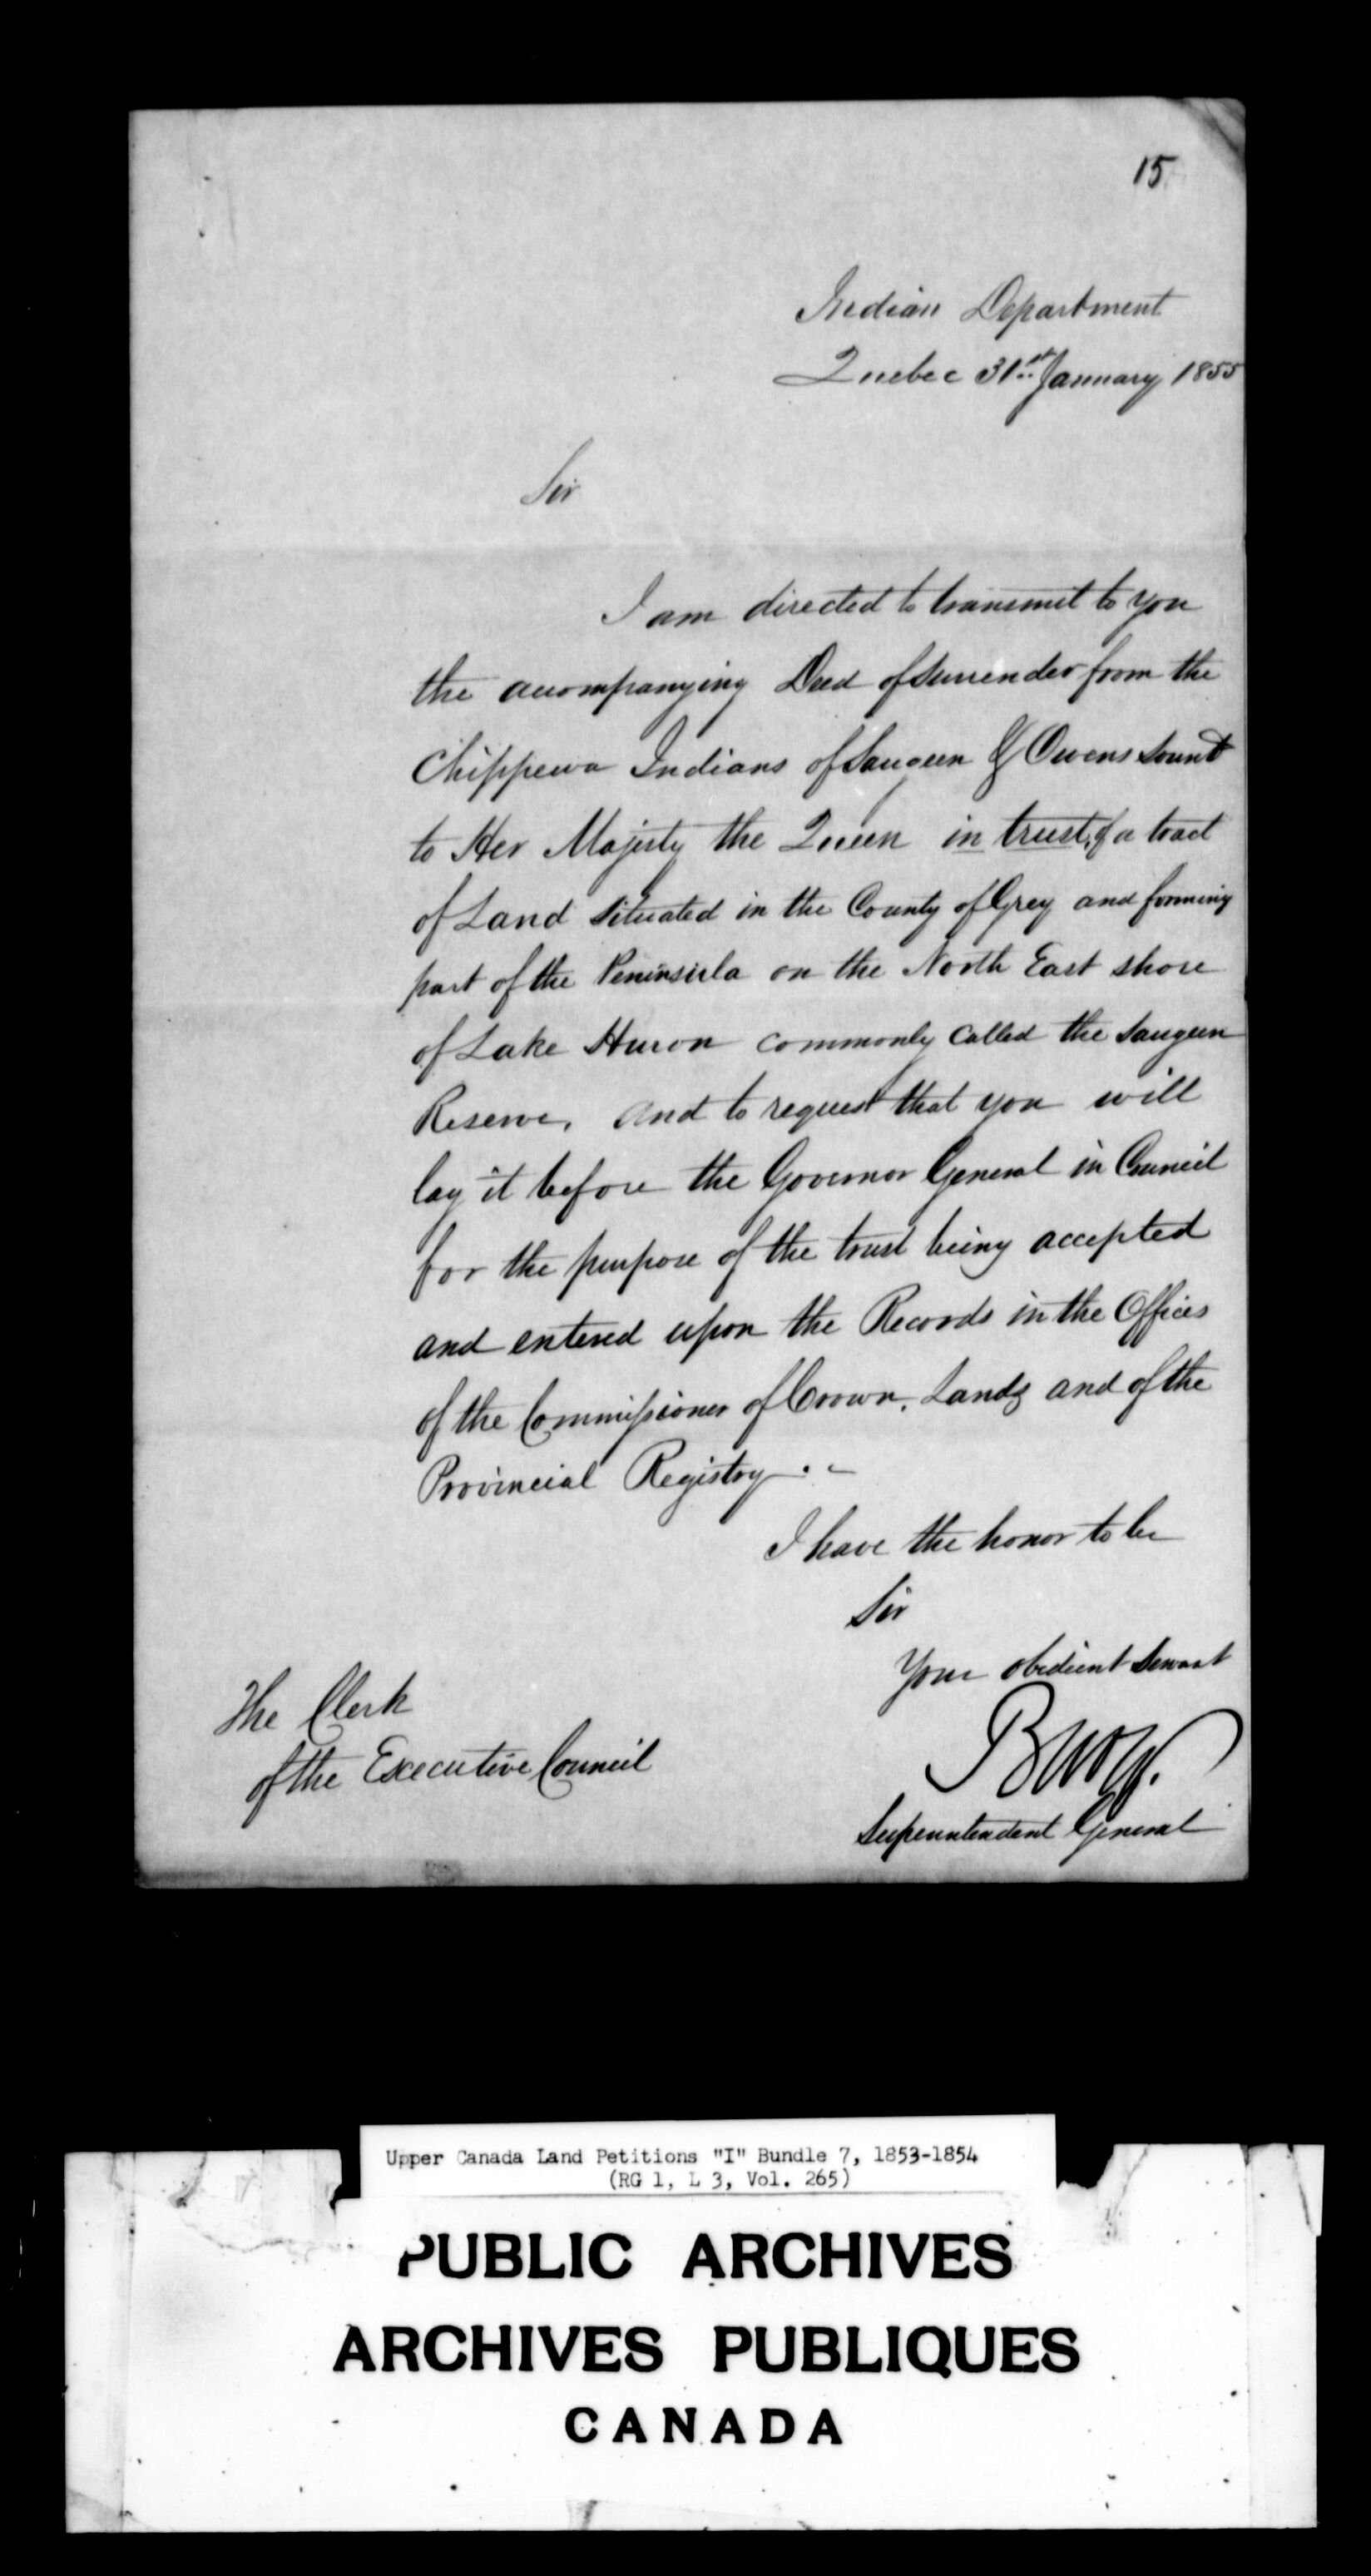 15
Indian Department
Quebec 31st January 1855
Sir
I am directed to transmit to you
the accompanying Deed of Surrender from the
Chippewa Indians of Saugeen & Owens Sound
to Her Majesty the Queen in trust, of a tract
of Land situated in the County of Grey and forming
part of the Peninsula on the North East shore
of Lake Huron commonly called the Saugeen
Reserve, and to request that you will
lay it before the Governor General in Council
for the purpose of the trust being accepted
and entered upon the Records in the Offices
of the Commissioner of Crown Lands and of the
Provincial Registry.-
I have the honor to be
Sir
Your obedient Servant
Bury.
Superintendent General
The Clerk
of the Executive Council
Upper Canada Land Petitions "I" Bundle 7, 1853-1854
(RG 1, L 3, Vol. 265)
PUBLIC ARCHIVES
ARCHIVES PUBLIQUES
CANADA